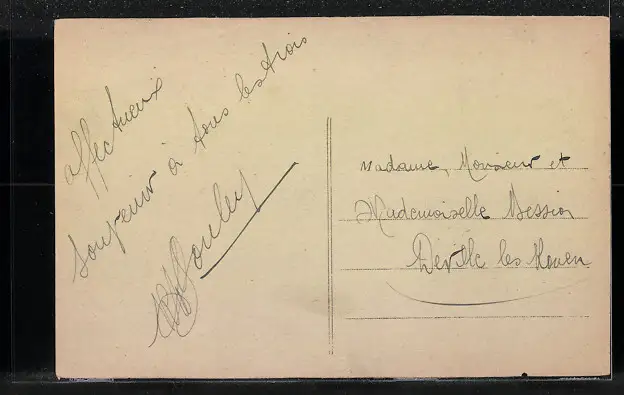 affectueux
souvenir à tous les trois
Madame, Monsieur et
Mademoiselle Bession
Deville les Rouen